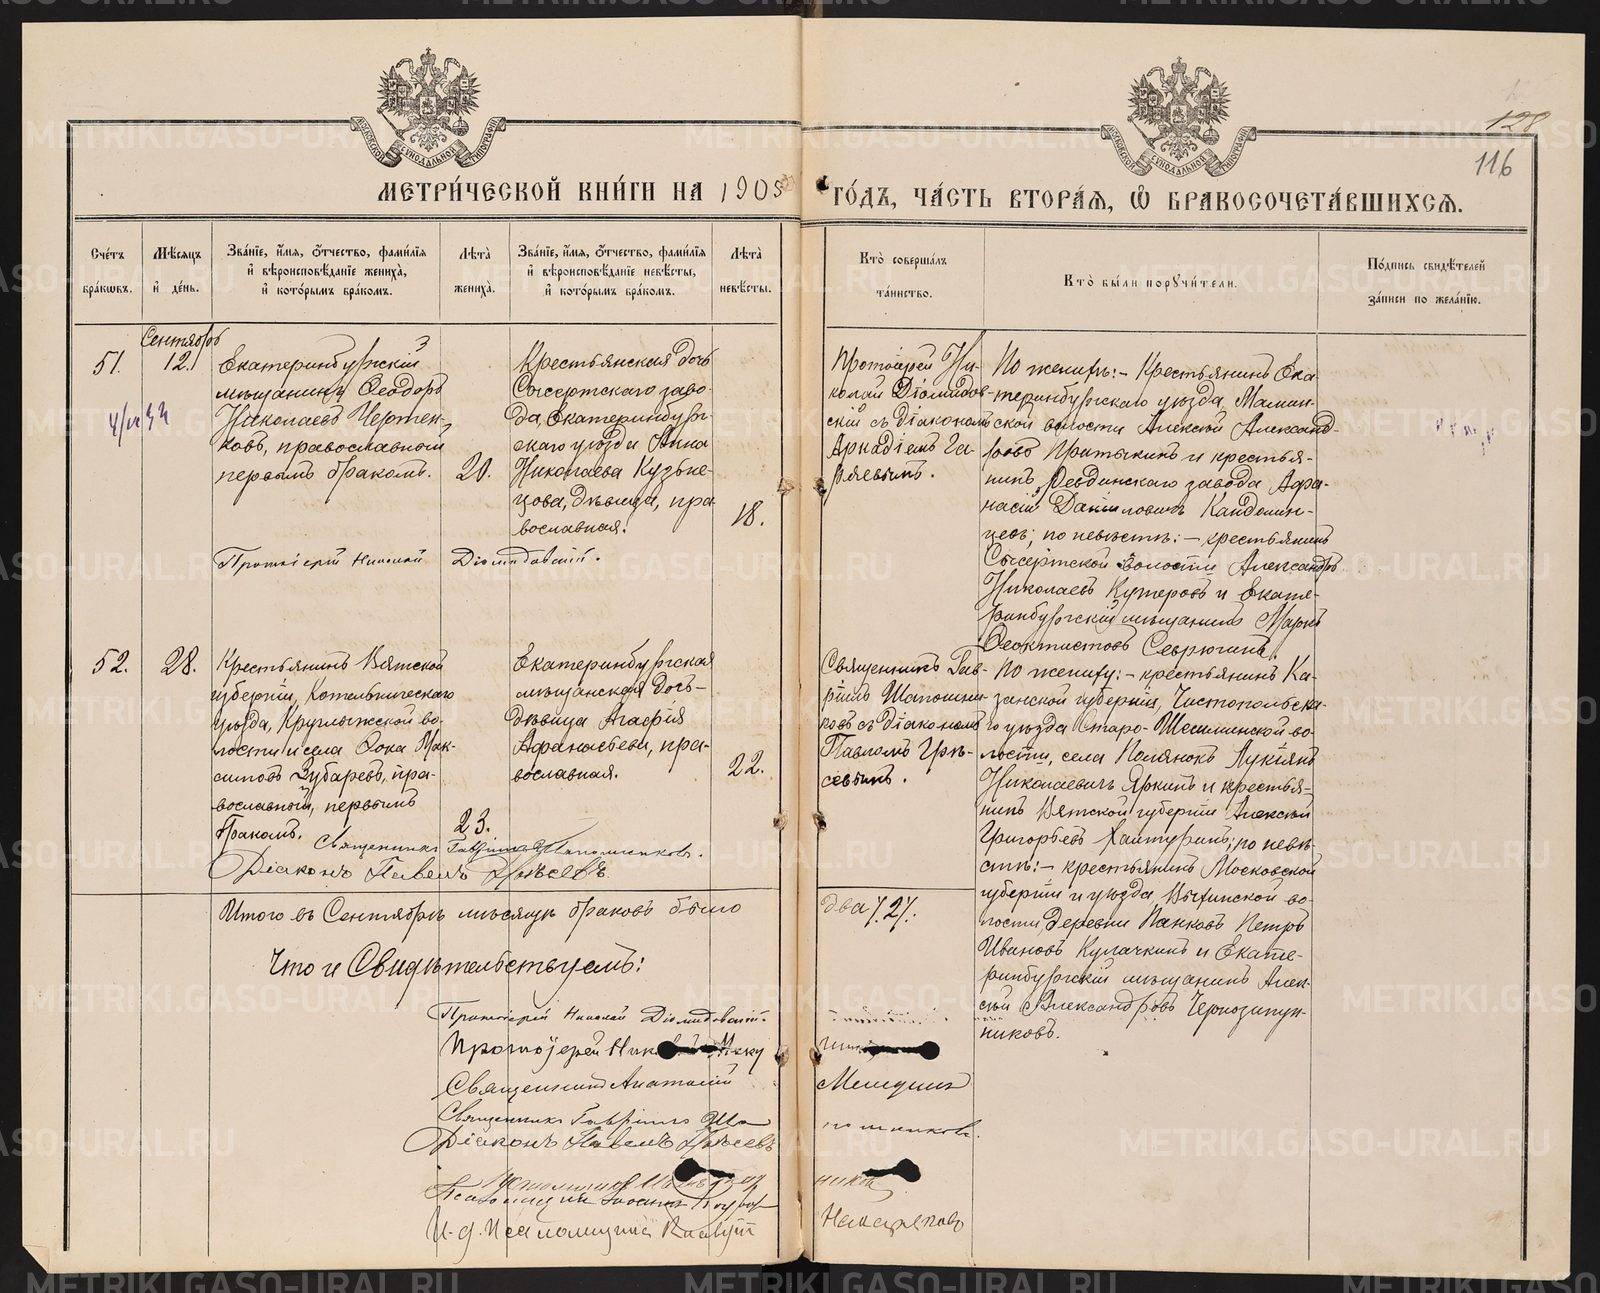 128
116
МЕТРИ́ЧЕСКОЙ КНИ́ГИ НА 1905 ГО́ДЪ, ЧА́СТЬ ВТОРА́Я, Ѡ҆ БРАКОСОЧЕТА́ВШИХСѦ.
Сче́тъ бра́кѡвъ.
Мѣ́сѧцъ и҆ де́нь.
Зва́нїе, и҆́мѧ, ѻ҆́тчество, фами́лїѧ
и҆ вѣроисповѣ́данїе жениха̀,
и҆ кото́рымъ бра́комъ.
Лѣта̀ жениха̀.
Зва́нїе, и҆́мѧ, ѻ҆́тчество, фами́лїѧ
и҆ вѣроисповѣ́данїе невѣ́сты,
и҆ кото́рымъ бра́комъ.
Лѣта̀ невѣ́сты.
Кто̀ соверша́лъ
та́инство.
Кто̀ бы́ли порꙋчи́тели.
По́дпись свидѣ́телей
за́писи по жела́нїю.
51.
Сентябрь
12.
Екатеринбургскій
мѣщанинъ Ѳеодоръ
Николаевъ Чертен-
ковъ, православный
первымъ бракомъ.
20.
Крестьянская дочь
Сысертскаго заво-
да, Екатеринбург-
скаго уѣзда Анна
Николаева Кузне-
цова, дѣвица, пра
вославная.
18.
Протоіерей Ни-
колай Діомидов-
скій съ діакономъ
Аркадіемъ Га-
ряевымъ.
По женихѣ: - Крестьянинъ Ека
теринбургскаго уѣзда, Мамин-
ской волости Алексѣй Александ-
ровъ Пратыкинъ и крестья-
нинъ Ревдинскаго завода Афа-
насій Даніиловичъ Кандалин-
цевъ; по невѣстѣ: - крестьянинъ
Сысертской волости Александръ
Николаевъ Кутеровъ и Екате-
ринбургскій мѣщанинъ Маркъ
Ѳеоктистовъ Севрюгинъ.
Протоіерей Николай Діомидовскій.
52.
28.
Крестьянинъ Вятской
губерніи, Котельническаго
уѣзда, Круглыжской во-
лости и села Ѳока Мак-
симовъ Зубаревъ, пра-
вославный, первымъ
бракомъ.
23.
Екатеринбургская
мѣщанская дочь-
дѣвица Агафія
Афанасьева, пра-
вославная.
22.
Священникъ Гав-
ріилъ Шапошни-
ковъ съ діакономъ
Павломъ
По женихѣ: - крестьянинъ Ка-
занской губерніи, Чистопольска-
го уѣзда Старо-Шешминской во-
лости, села Полянокъ Лукіянъ
Николаевичъ Яркинъ и крестья-
нинъ Вятской губерніи Алексѣй
Григорьевъ Халтуринъ; по невѣ-
стѣ: - крестьянинъ Московской
губерніи и уѣзда, во-
лости, деревни Панковъ Петръ
Ивановъ Кулачкинъ и Екате-
ринбургскій мѣщанинъ Алек-
сѣй Александровъ Чернозипун-
никовъ.
Священникъ Гавріилъ Шапошниковъ.
Діаконъ Павелъ
Итого въ Сентябрѣ мѣсяцѣ браковъ было два /.2/.
Что и Свидѣтельствуемъ:
Протоіерей Николай Діомидовскій.
Протоіерей
Священникъ Анатолій
Священникъ Гавріилъ Шапошниковъ.
Діаконъ Павелъ
Псаломщикъ
И. д. Псаломщика
METRIKI.GASO-URAL.RU